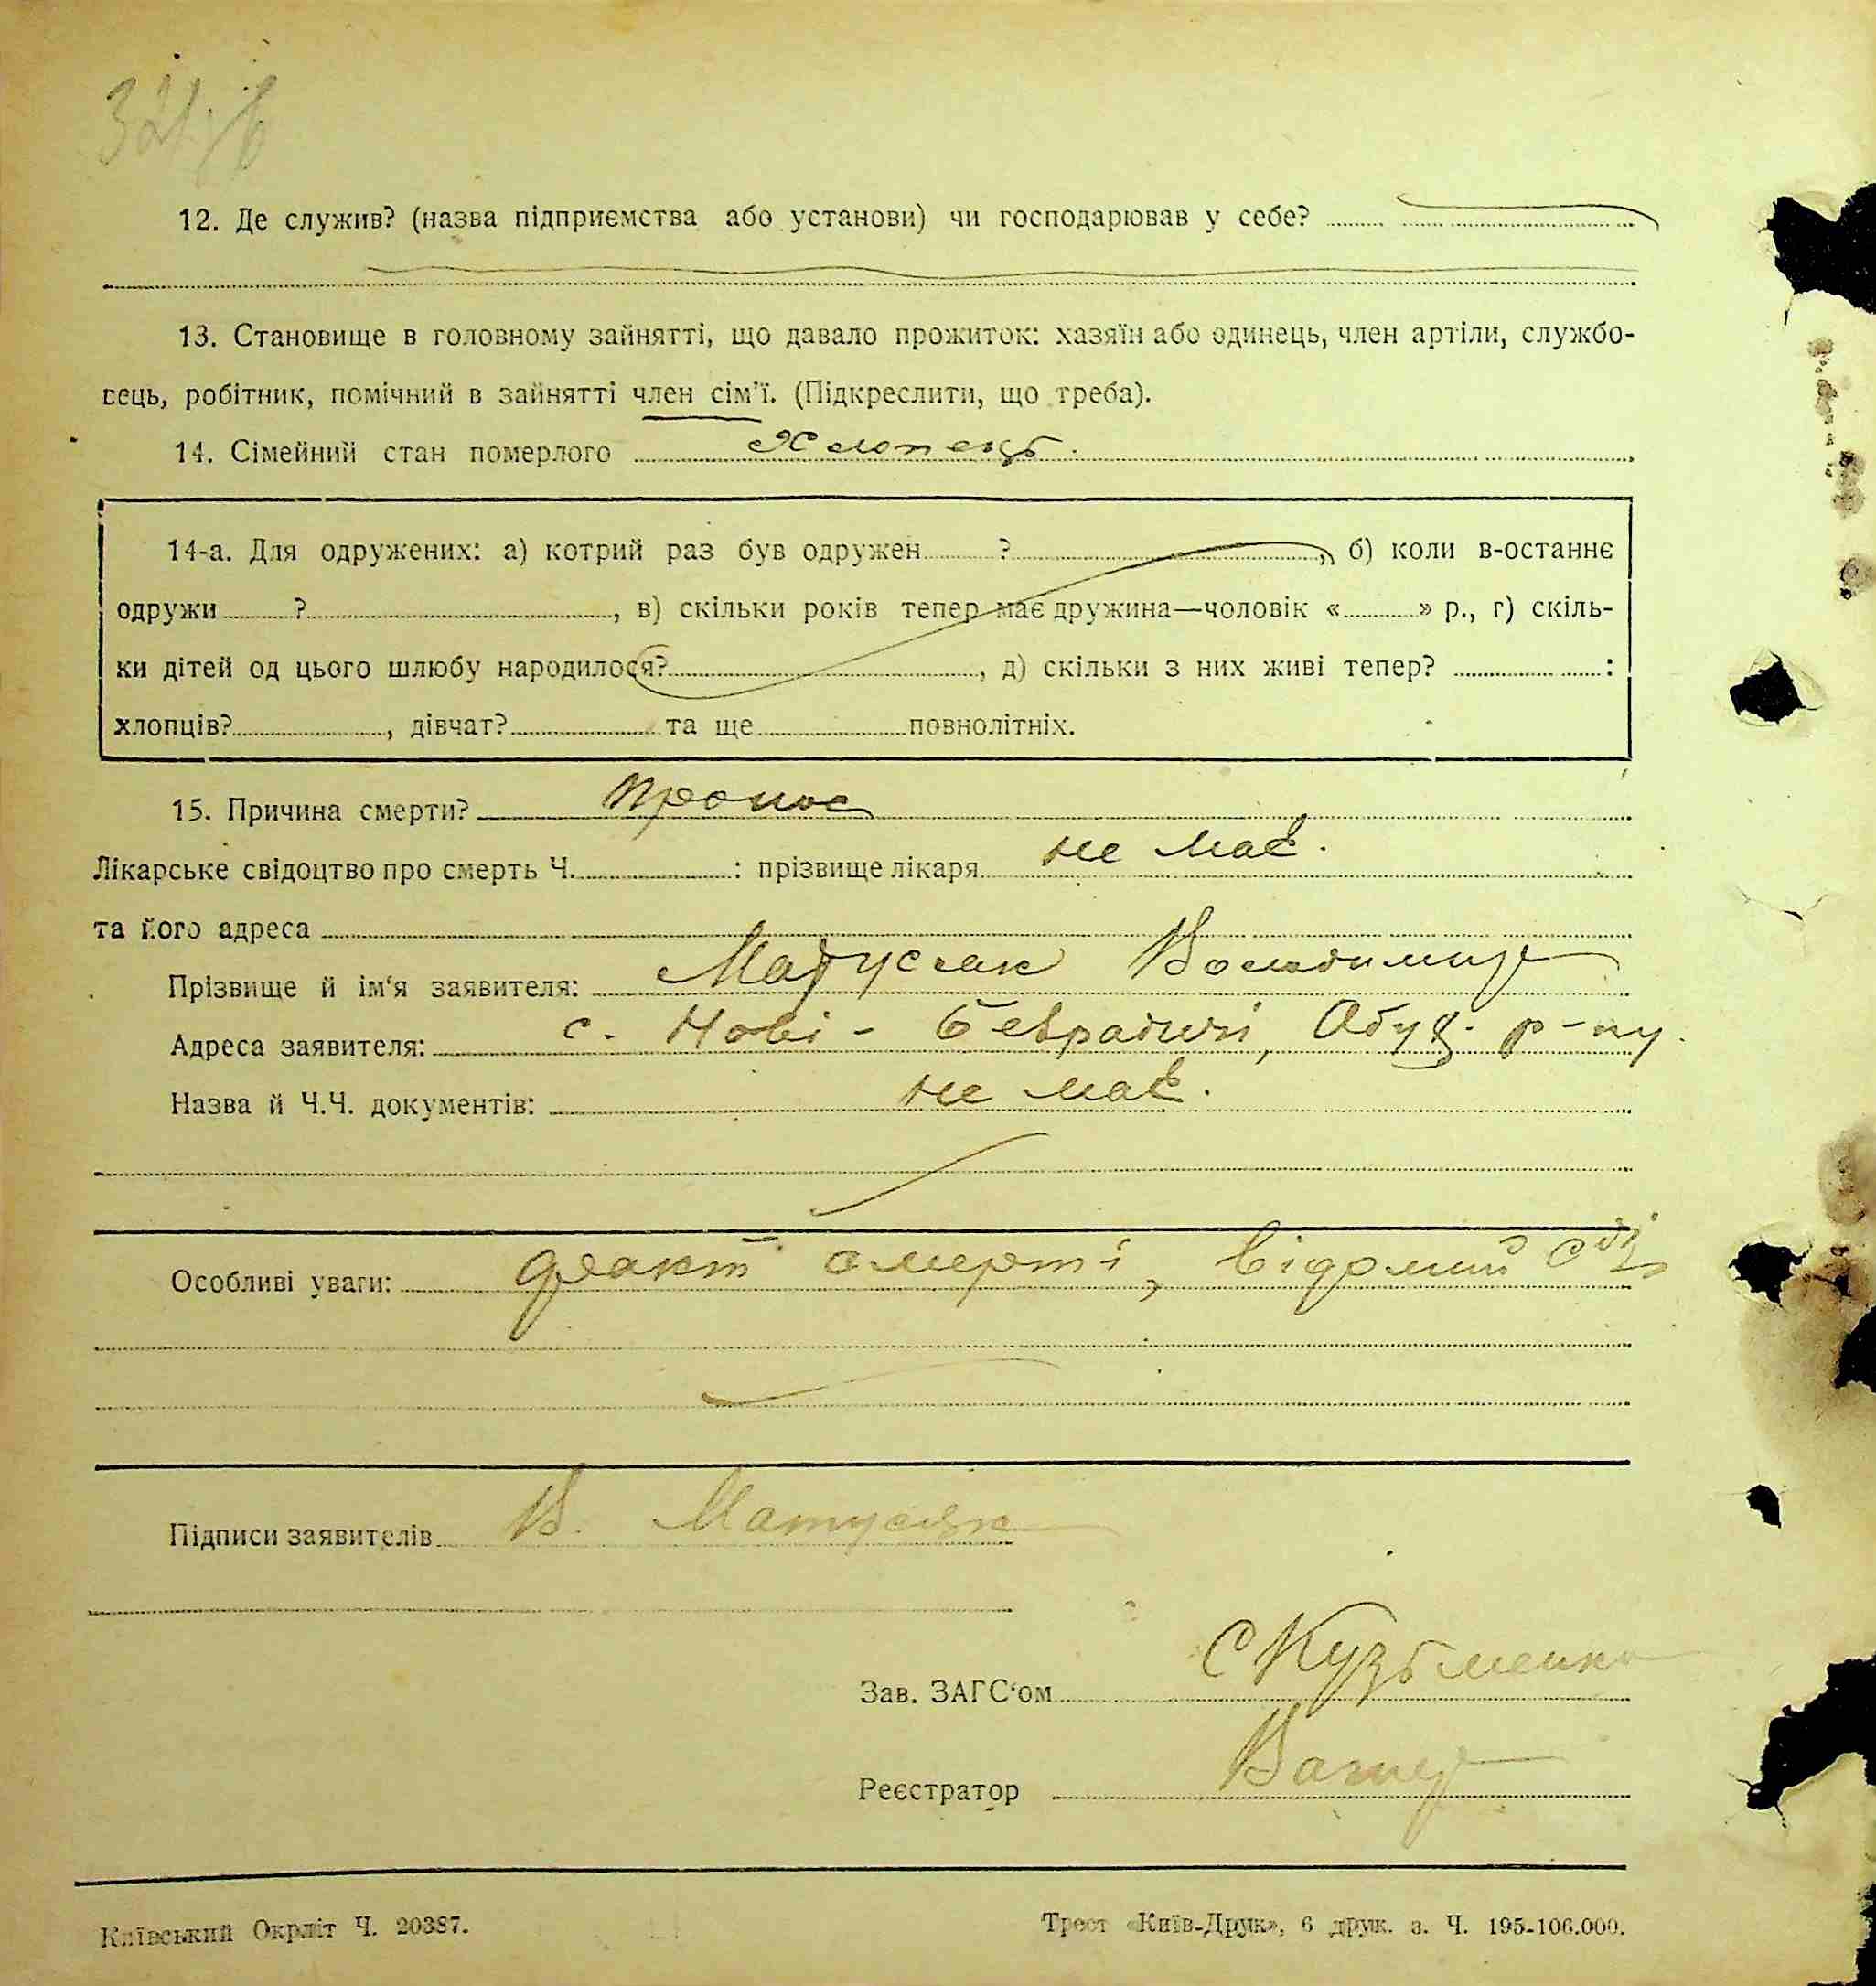 12. Де служив? (назва підприємства або установи) чи господарював у себе?
13. Становище в головному зайнятті, що давало прожиток: хазяїн або одинець, член артіли, службо-
вець, робітник, помічний в зайнятті член сім'ї. (Підкреслити, що треба).
14. Сімейний стан померлого Хлопець.
14-а. Для одружених: а) котрий раз був одружен ? , б) коли в-останнє
одружи ? , в) скільки років тепер має дружина—чоловік « » р., г) скіль-
ки дітей од цього шлюбу народилося? , д) скільки з них живі тепер? :
хлопців? , дівчат? та ще повнолітніх.
15. Причина смерти? Пронос
Лікарське свідоцтво про смерть Ч. : прізвище лікаря не має.
та його адреса
Прізвище й ім'я заявителя: Матусяк Володимир
Адреса заявителя: с. Нові-Безрадичі, Обух. р-ну.
Назва й Ч.Ч. документів: не має.
Особливі уваги: факт смерті, відомий
Підписи заявителів В. Матусяк
Зав. ЗАГС'ом С Кузьменко
Реєстратор
Київський Окрліт Ч. 20387.
Трест «Київ-Друк», 6 друк. з. Ч. 195-106.000.